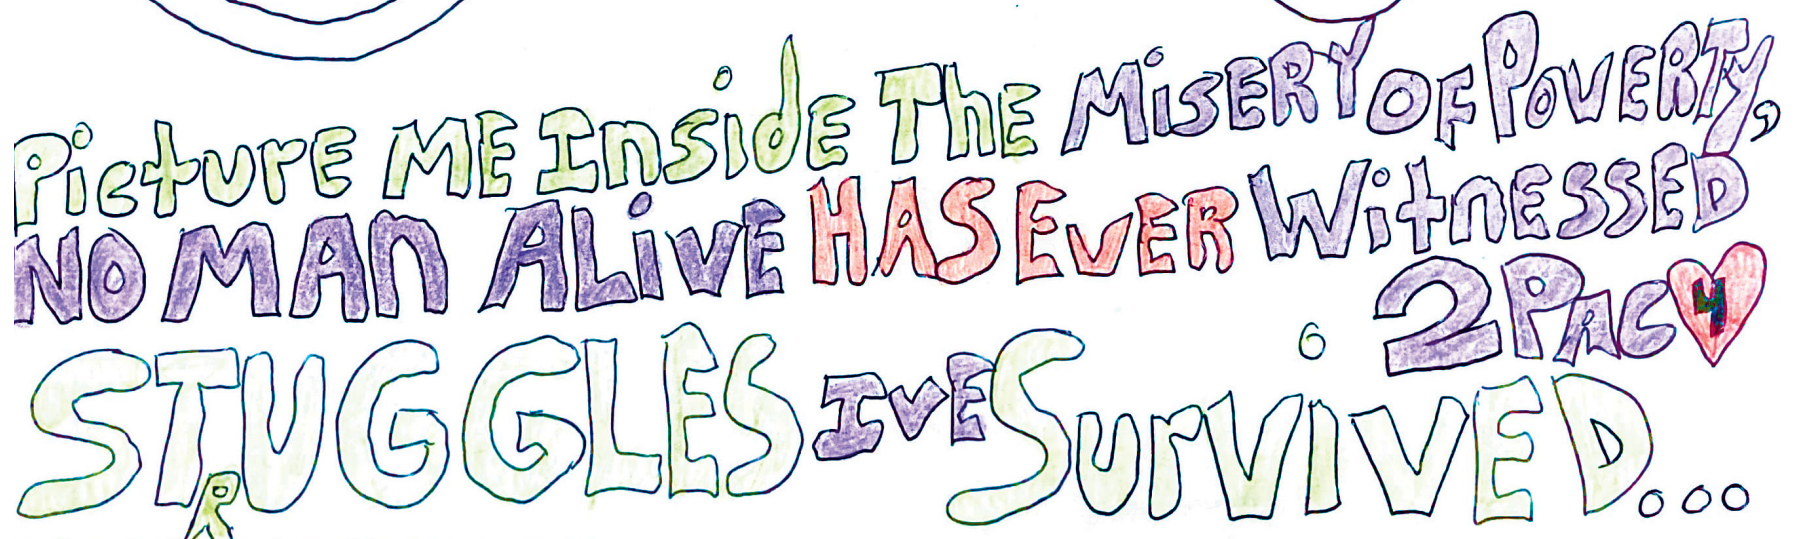 Picture ME Inside ThE MiSERY OF POVERTY,
NO MAn ALivE HAS EvER WitnESSED
2PAC 4
STRUGGLES IvE SurviVED...